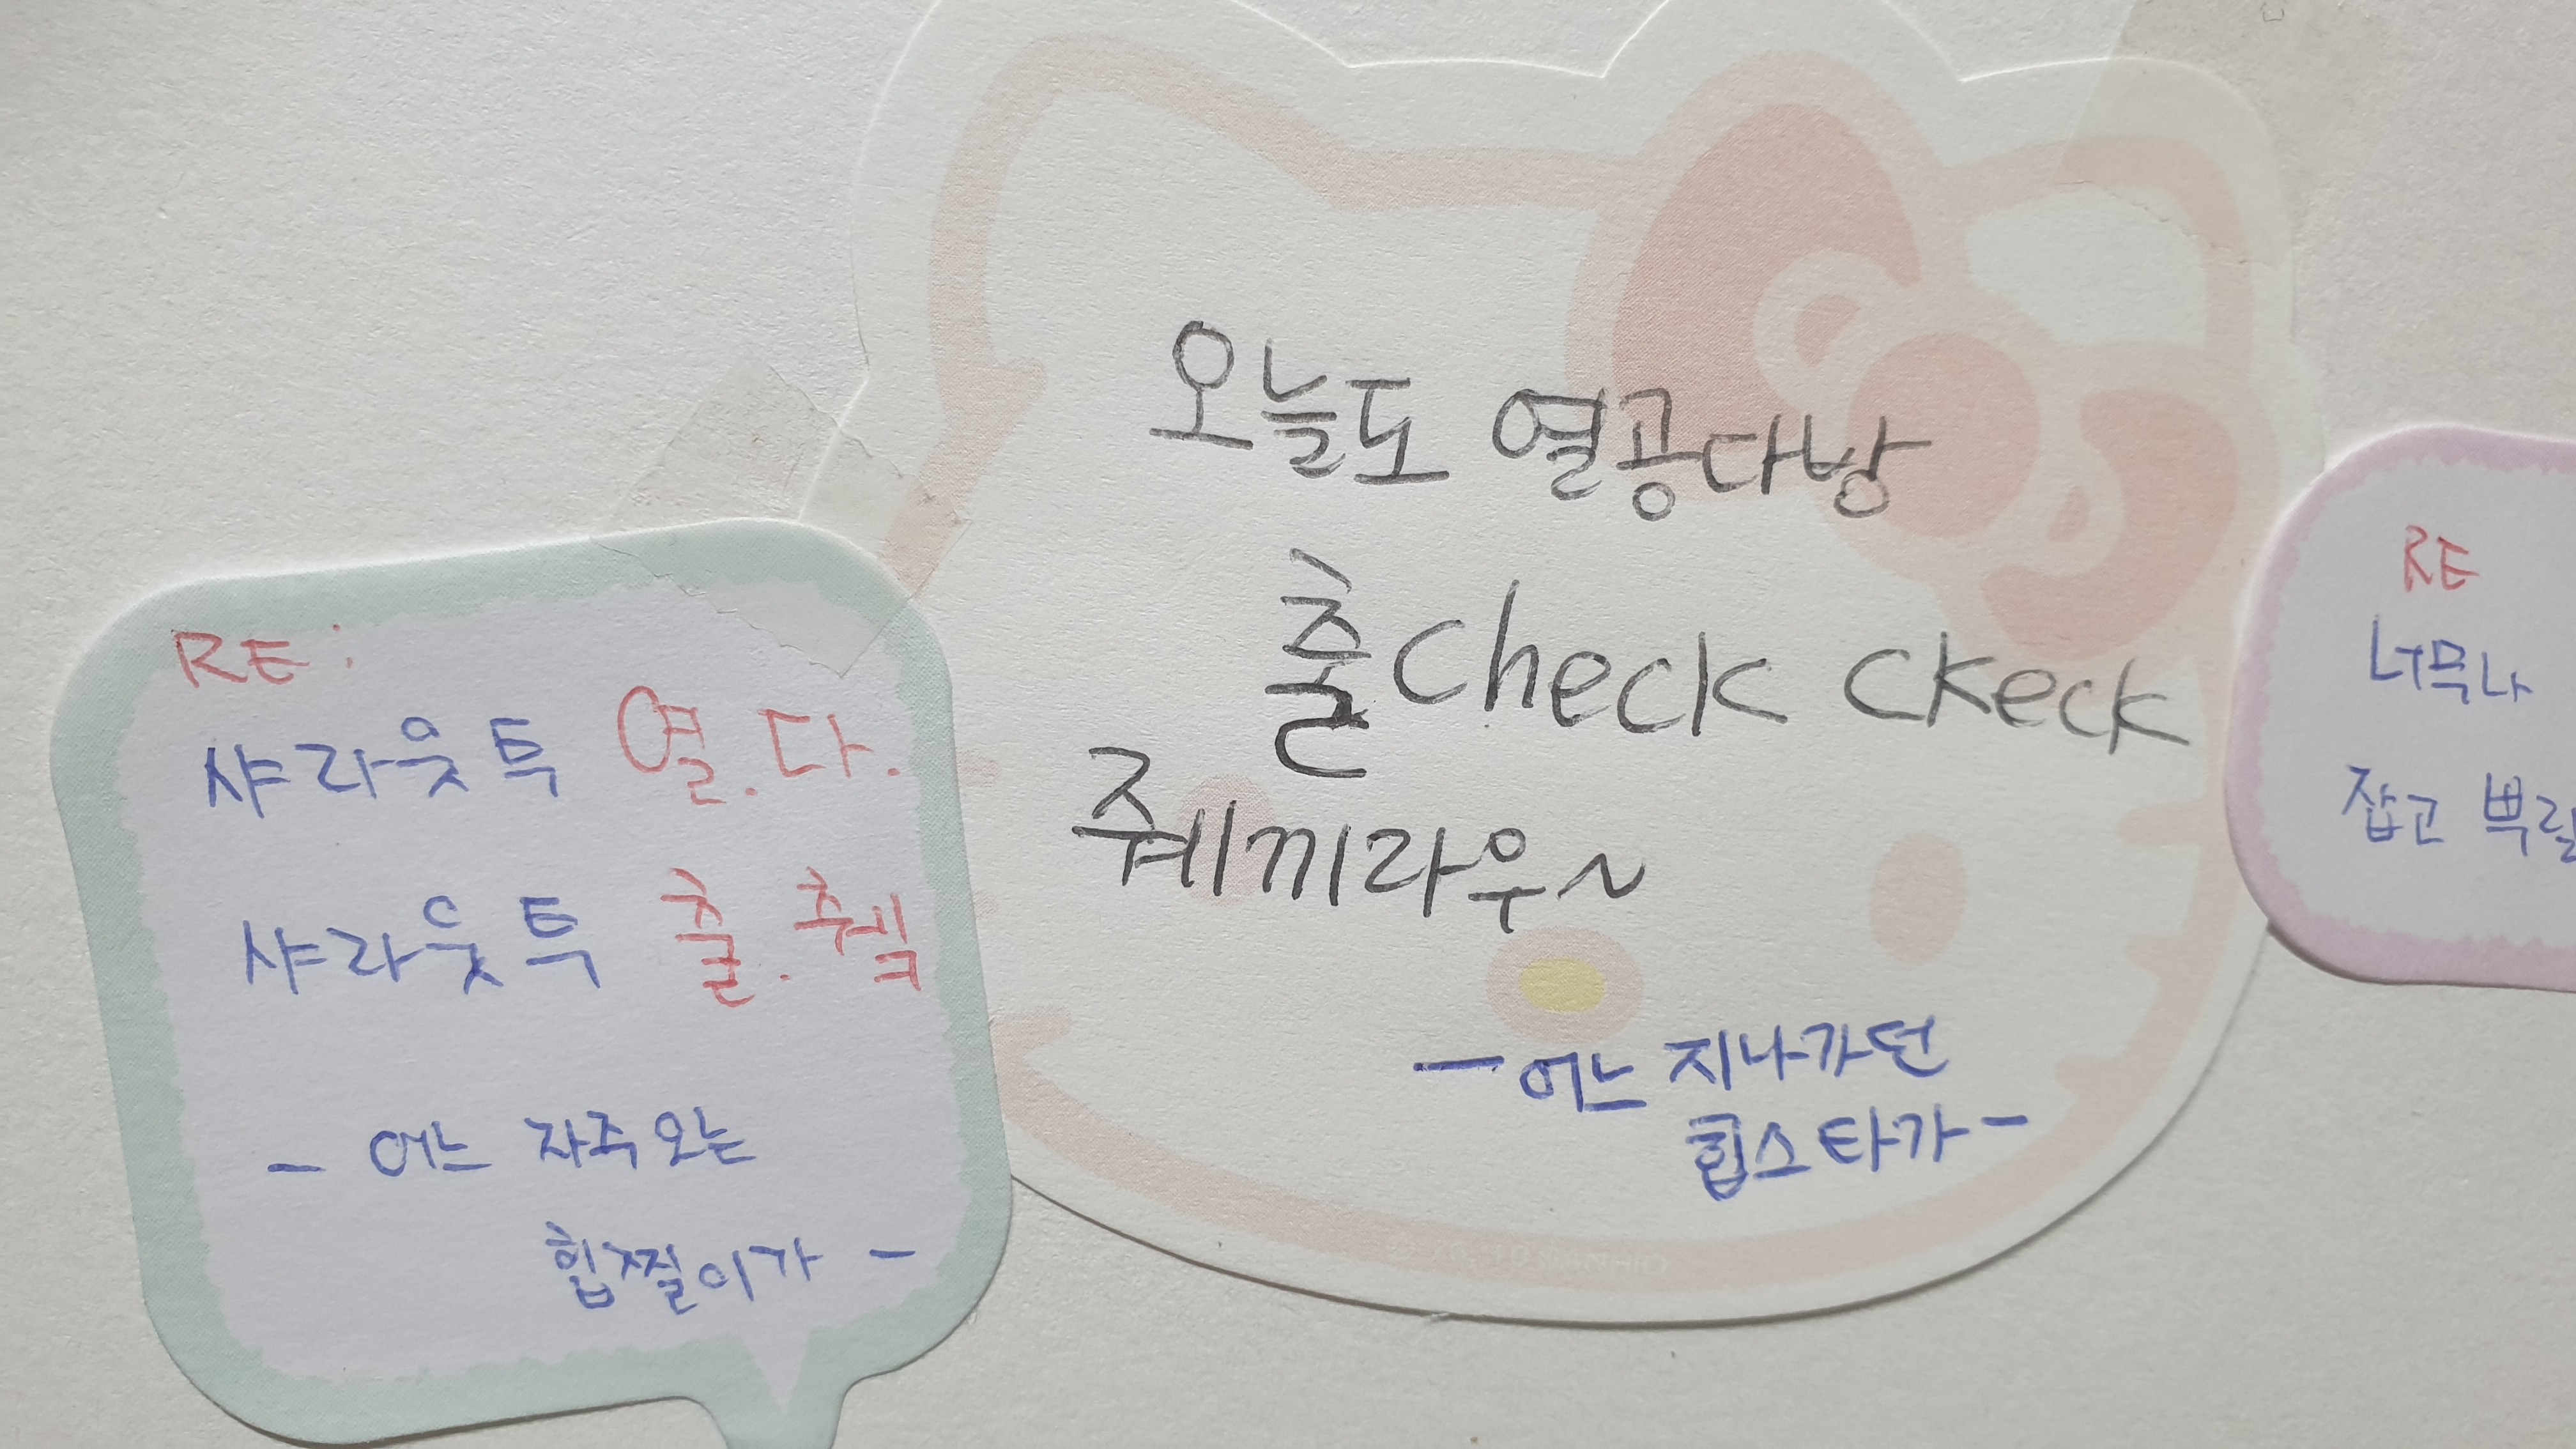 오늘도 열공다방
출check ckeck
췌끼라우~
-어느 지나가던
힙스타가-
RE:
샤라웃투 열.다.
샤라웃투 출.췤
- 어느 자주오는
힙찔이가 -
RE
너무나
잡고